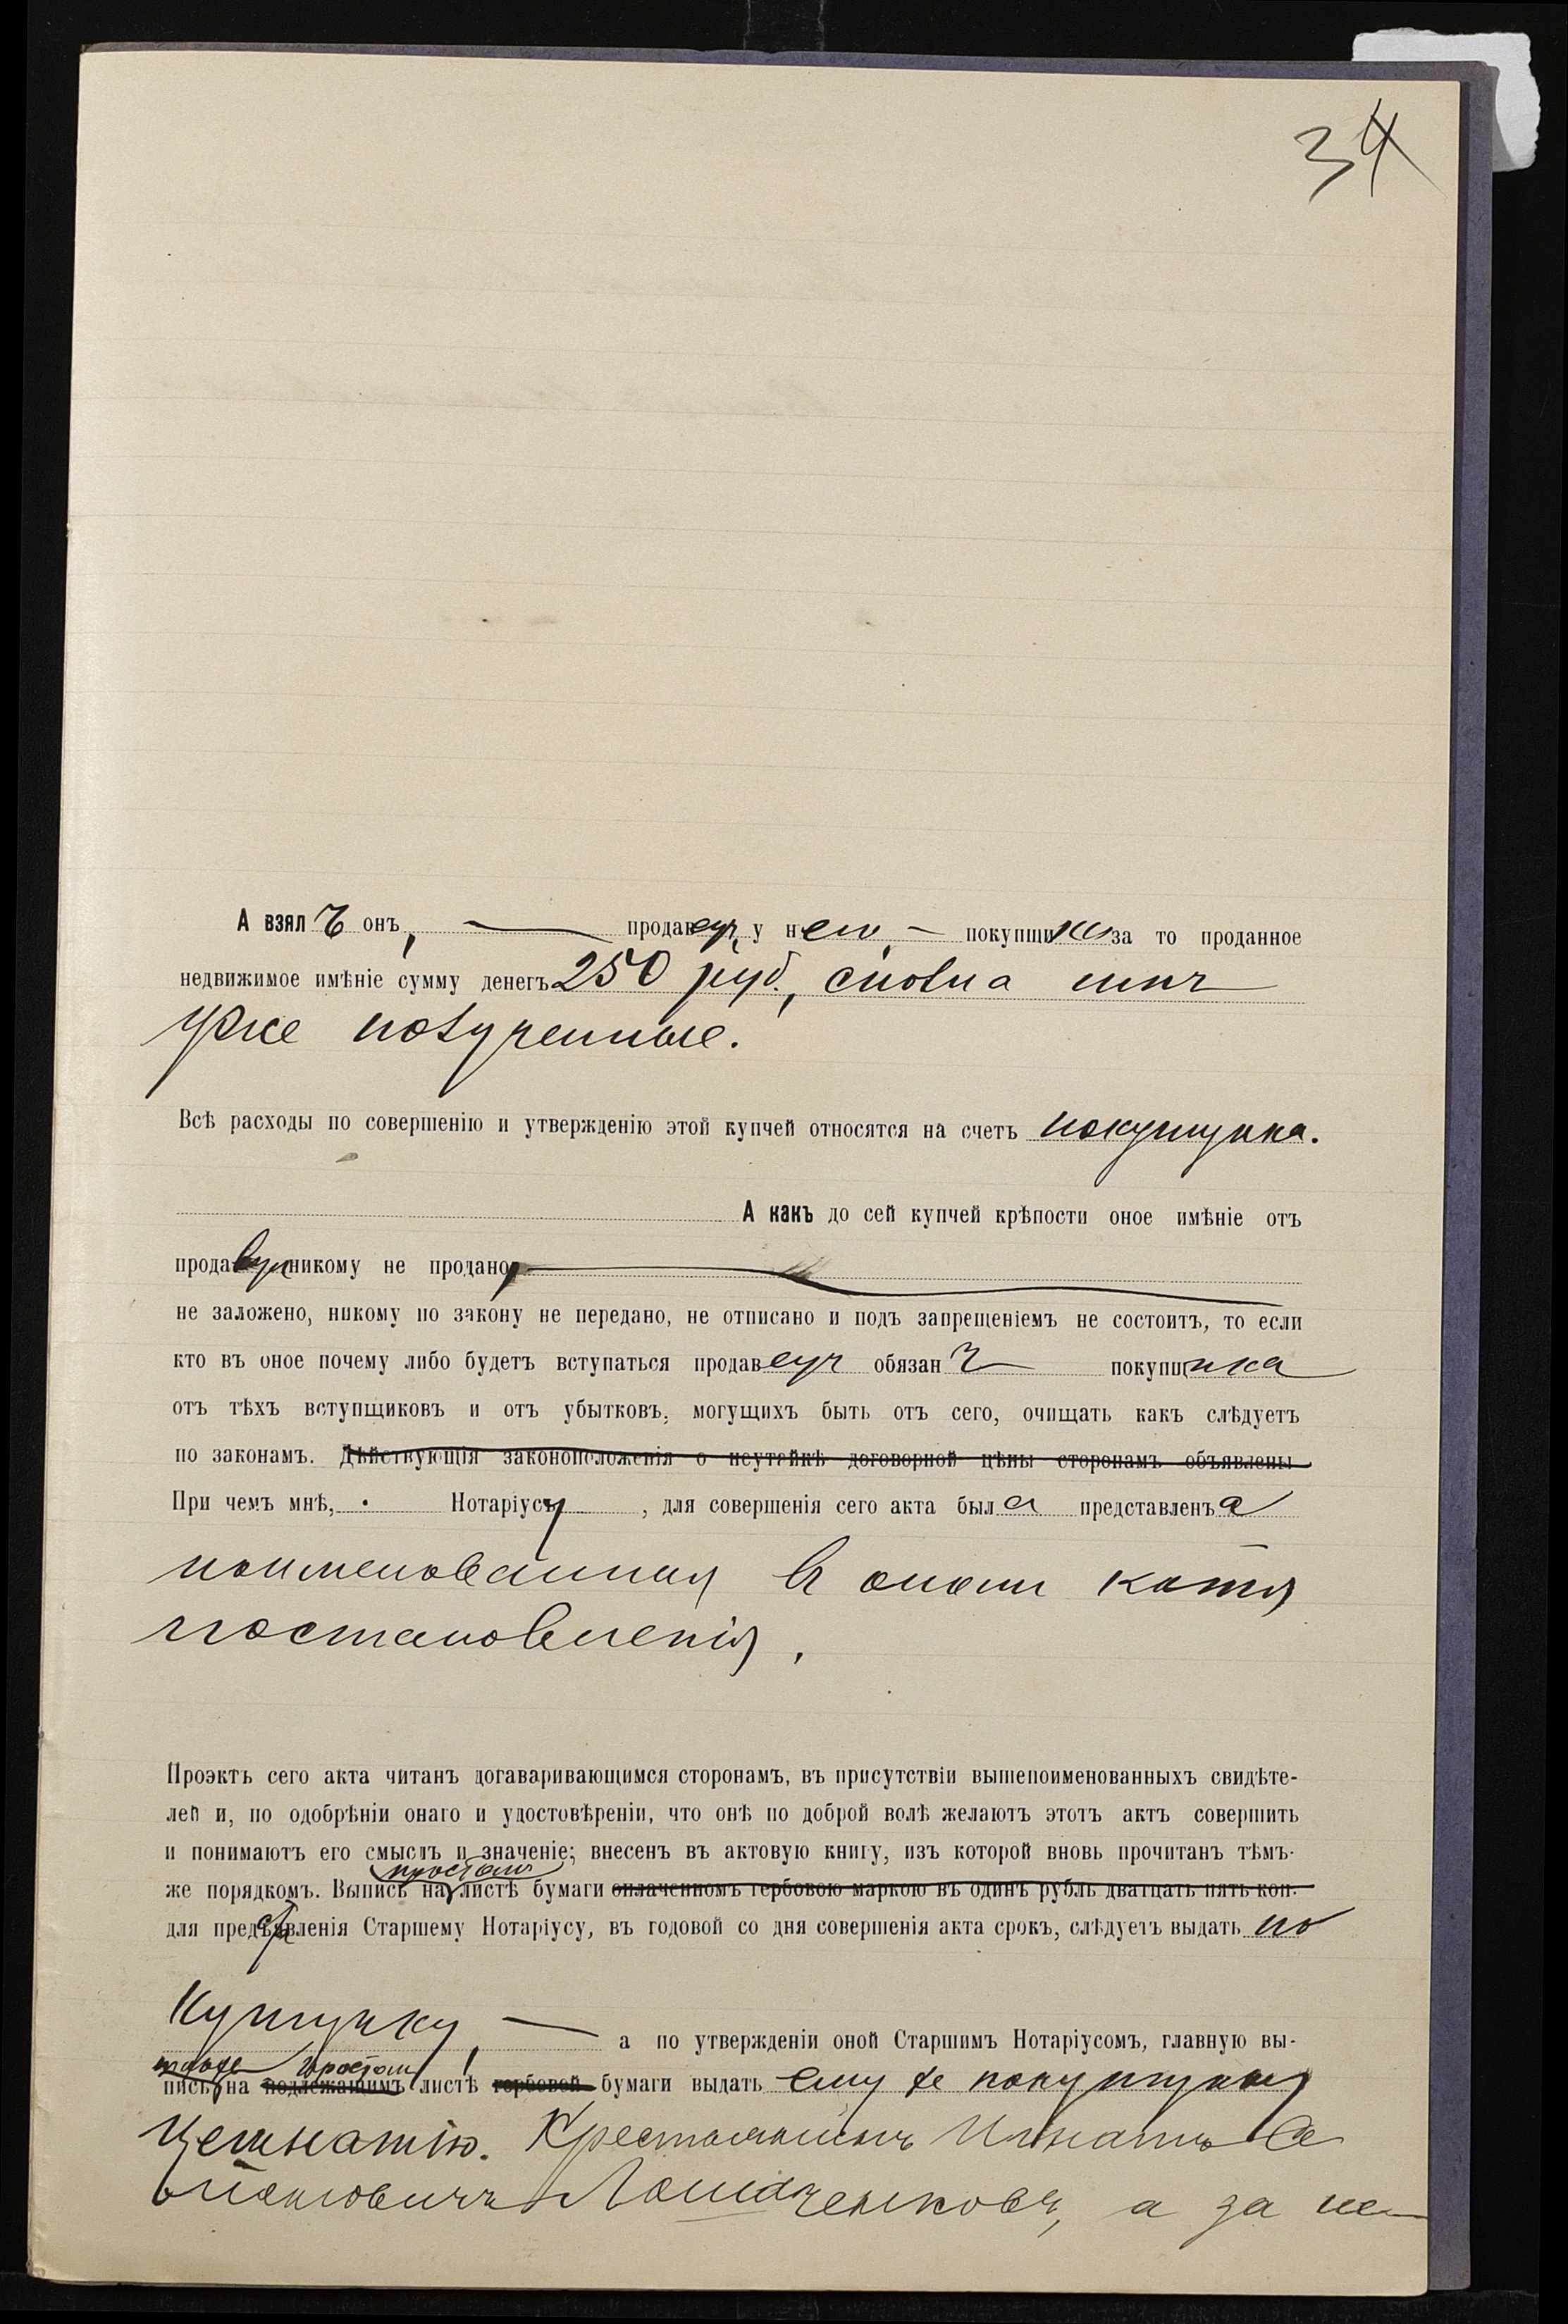 34
А взялъ онъ, — продавецъ, у него, — покупщика за то проданное
недвижимое имѣніе сумму денегъ 250 руб., сполна имъ
уже полученные.
Всѣ расходы по совершенію и утвержденію этой купчей относятся на счетъ покупщика.
А какъ до сей купчей крѣпости оное имѣніе отъ
продавца никому не продано,
не заложено, никому по закону не передано, не отписано и подъ запрещеніемъ не состоитъ, то если
кто въ оное почему либо будетъ вступаться продавецъ обязанъ покупщика
отъ тѣхъ вступщиковъ и отъ убытковъ, могущихъ быть отъ сего, очищать какъ слѣдуетъ
по законамъ. Дѣйствующія законоположенія о неутайкѣ договорной цѣны сторонамъ объявлены
При чемъ мнѣ, Нотаріусу, для совершенія сего акта была представлена
поименованная въ ономъ копія
постановленія.
Проэктъ сего акта читанъ догаваривающимся сторонамъ, въ присутствіи вышепоименованныхъ свидѣте-
лей и, по одобрѣніи онаго и удостовѣреніи, что онѣ по доброй волѣ желаютъ этотъ актъ совершить
и понимаютъ его смыслъ и значеніе; внесенъ въ актовую книгу, изъ которой вновь прочитанъ тѣмъ-
простомъ
же порядкомъ. Выпись на листѣ бумаги оплаченномъ гербовою маркою въ одинъ рубль двадцать пять коп.
для представленія Старшему Нотаріусу, въ годовой со дня совершенія акта срокъ, слѣдуетъ выдать по
купщику, — а по утвержденіи оной Старшимъ Нотаріусомъ, главную вы-
также простомъ
пись, на подлежащимъ листѣ гербовой бумаги выдать ему же покупщику
Крестьянинъ Игнатъ
а за не